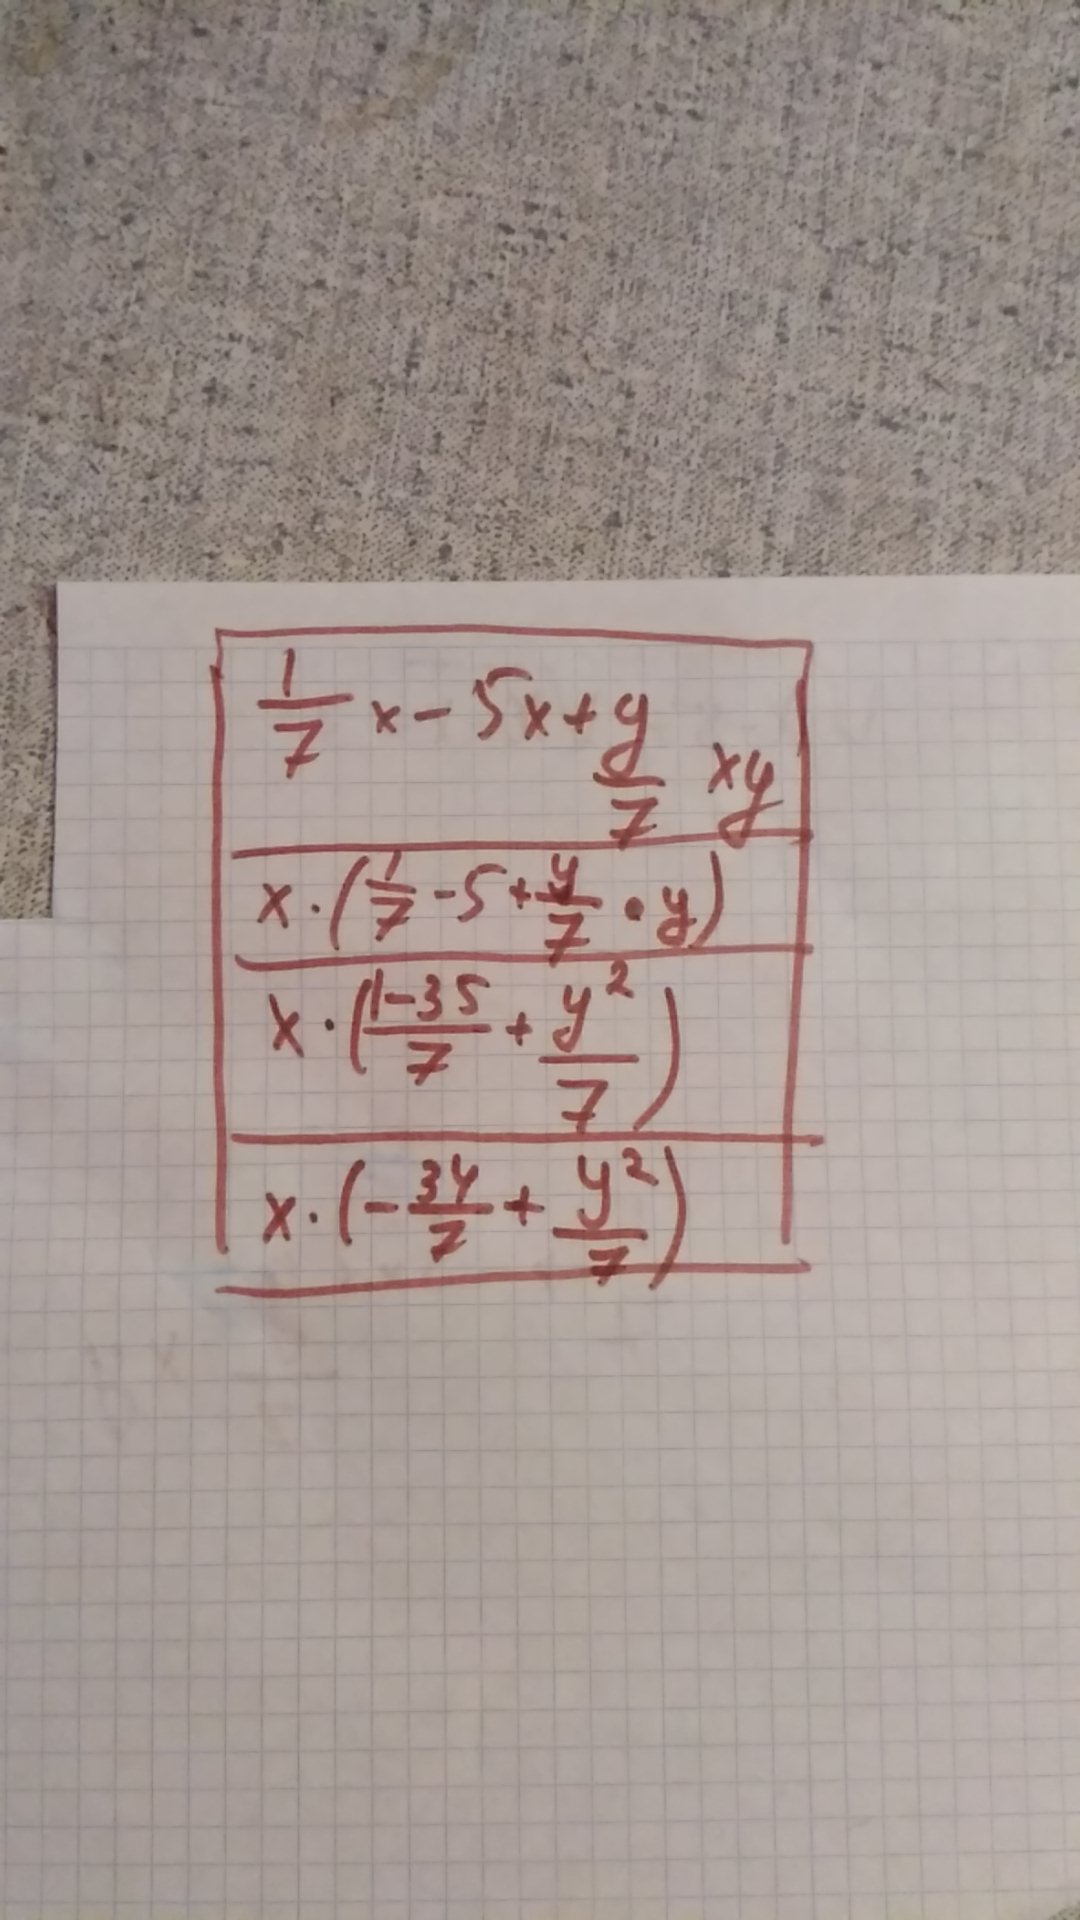 1/7 x - 5x + y/7 xy
x · (1/7 - 5 + y/7 · y)
x · ((1-35)/7 + y²/7)
x · (- 34/7 + y²/7)